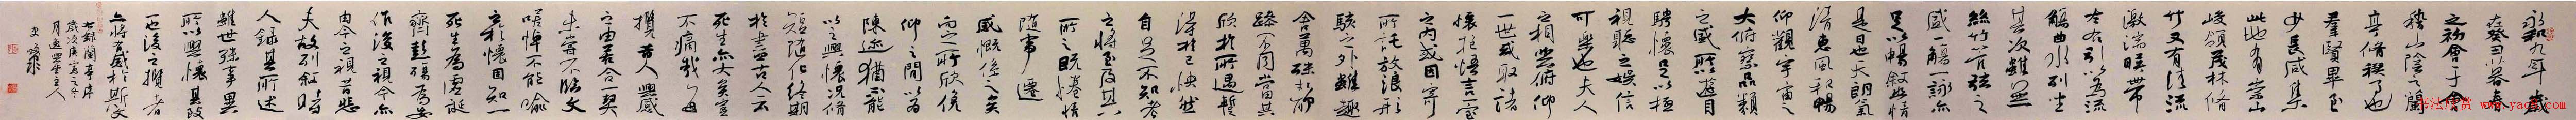 永和九年歲
在癸丑暮春
之初會于會
稽山陰之蘭
亭修禊事也
羣賢畢至
少長咸集
此地有崇山
峻領茂林修
竹又有清流
激湍暎帶
左右引以為流
觴曲水列坐
其次雖無
絲竹管弦之
盛一觴一詠亦
足以暢敘幽情
是日也天朗氣
清惠風和暢
仰觀宇宙之
大俯察品類
之盛所以遊目
騁懷足以極
視聽之娛信
可樂也夫人
之相與俯仰
一世或取諸
懷抱悟言一室
之內或因寄
所託放浪形
骸之外雖趣
舍萬殊靜
躁不同當其
欣於所遇暫
得於己快然
自足不知老
之將至及其
所之既惓情
隨事遷
感慨係之矣
向之所欣俛
仰之間以為
陳迹猶不能
以之興懷況修
短隨化終期
於盡古人云
死生亦大矣豈
不痛哉每
攬昔人興感
之由若合一契
未嘗不臨文
嗟悼不能喻
之於懷固知一
死生為虛誕
齊彭殤為妄
作後之視今亦
由今之視昔悲
夫故列敘時
人錄其所述
雖世殊事異
所以興懷其致
一也後之攬者
亦將有感於斯文
右錄蘭亭序
歲次庚寅之冬
书法欣赏 www.yac8.com